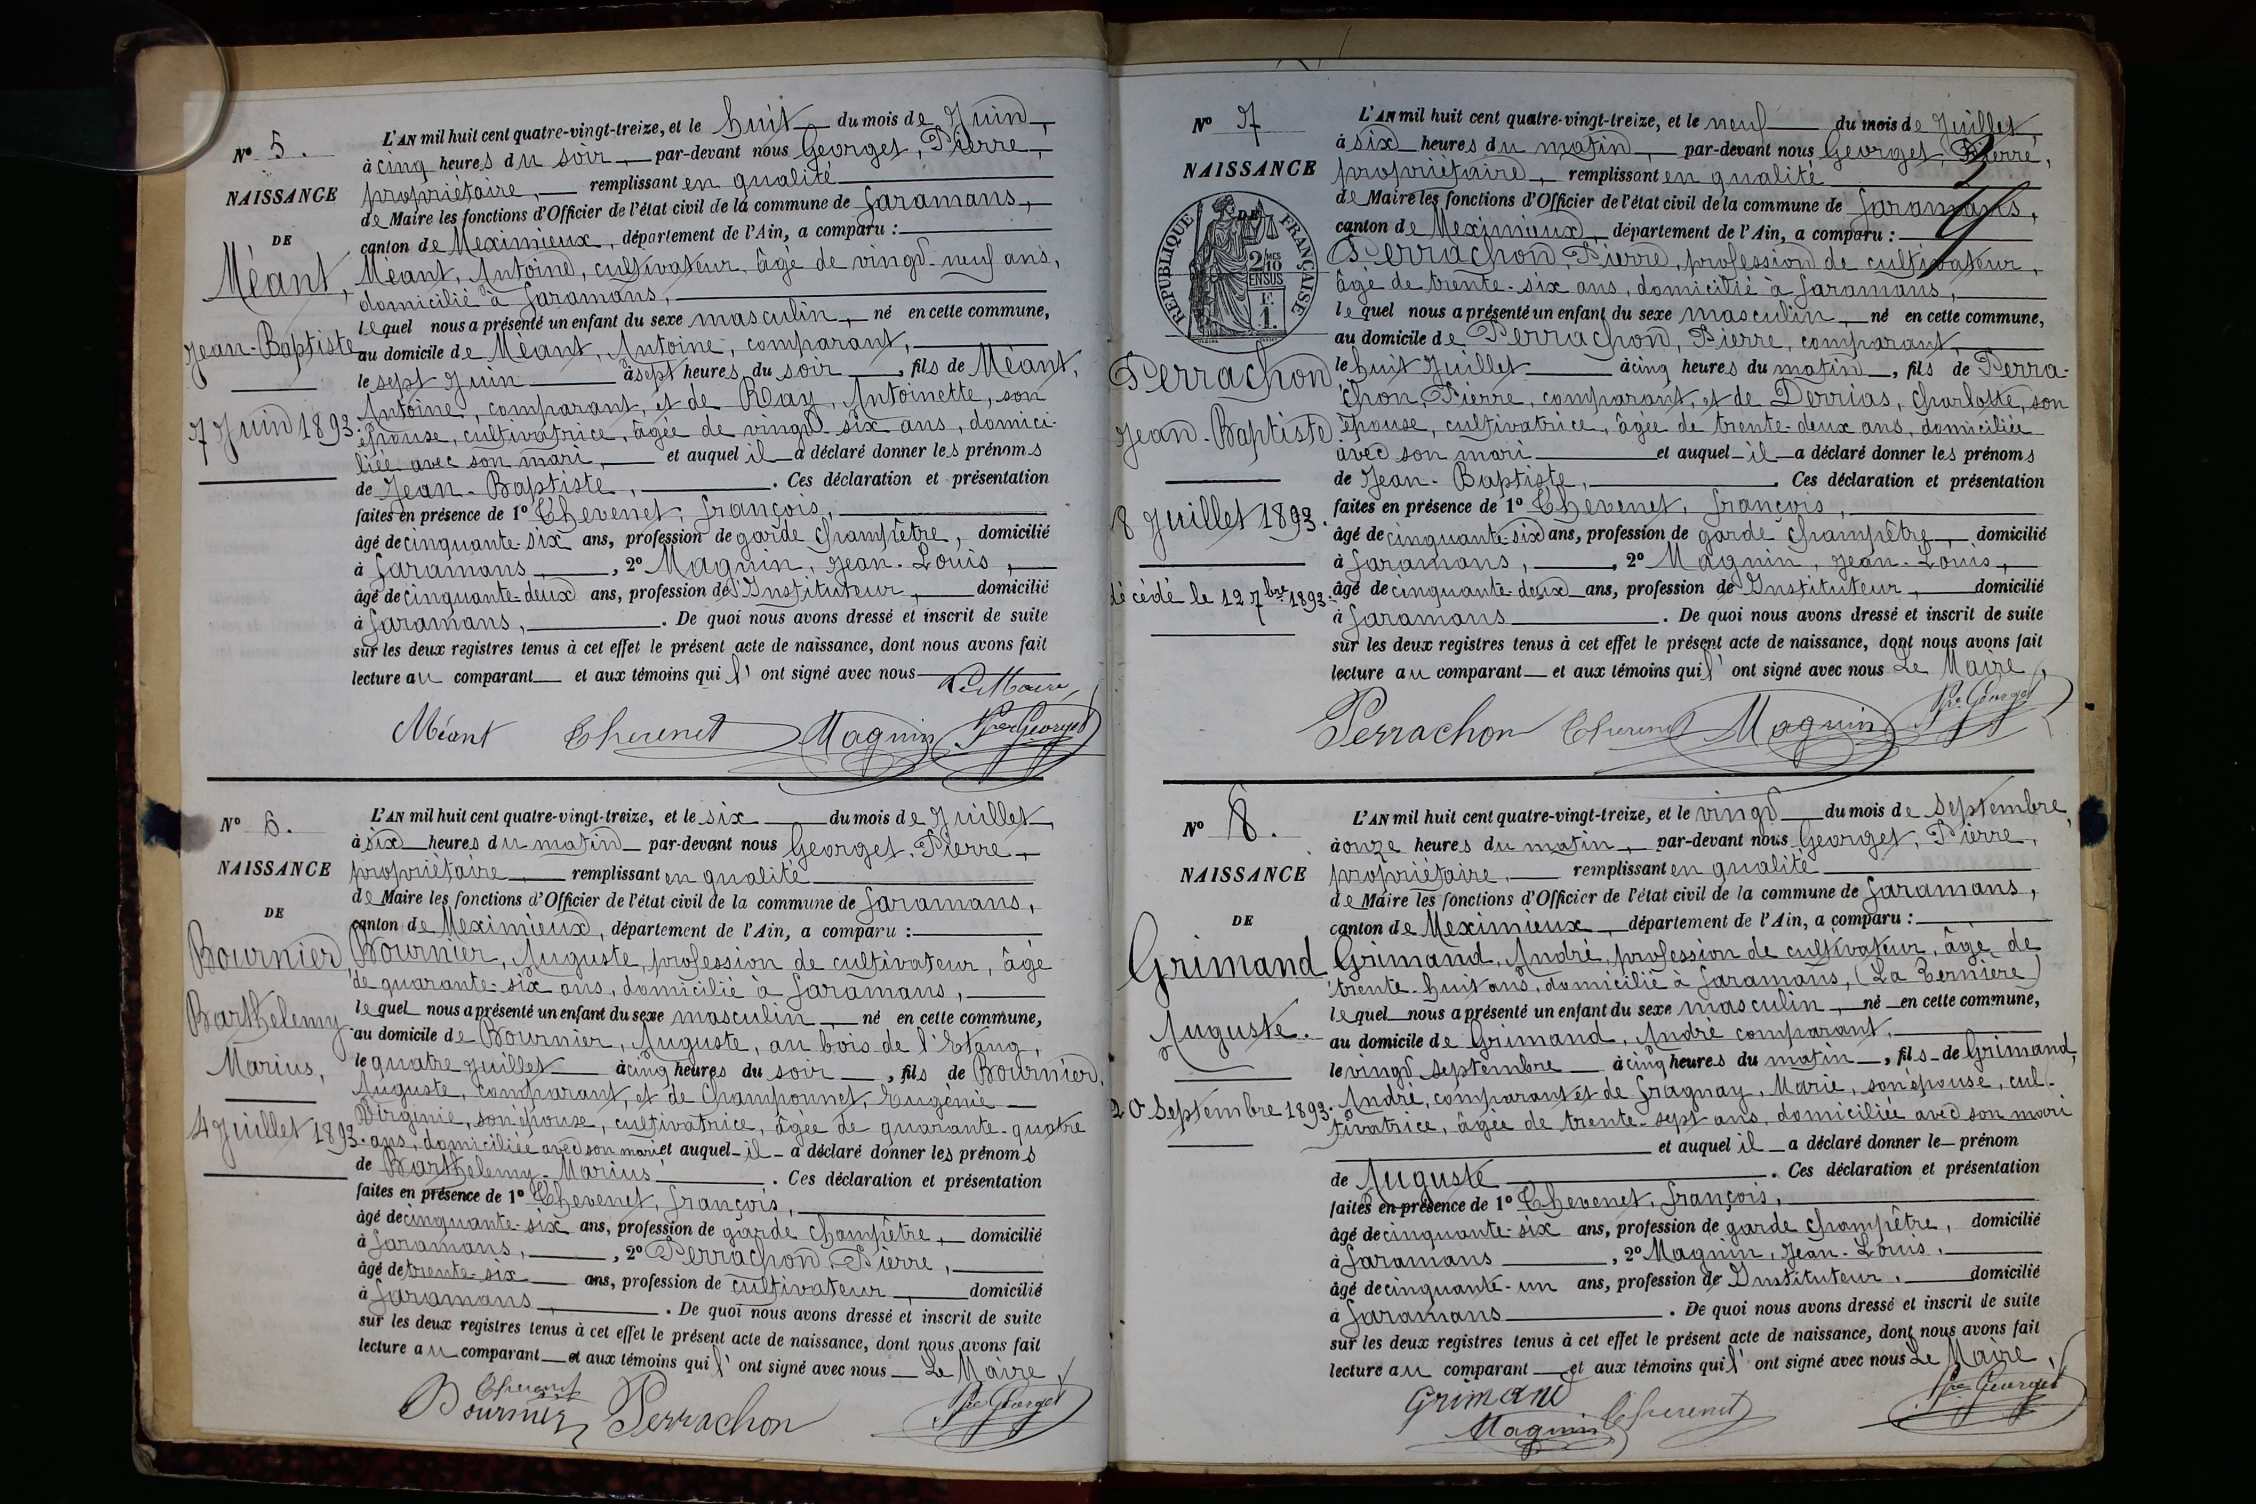 Nº 5.
NAISSANCE
DE
Méant,
Jean-Baptiste
7 Juin 1893.
L'AN mil huit cent quatre-vingt-treize, et le huit du mois de Juin,
à cinq heures du soir, par-devant nous Georget, Pierre,
propriétaire, remplissant en qualité
de Maire les fonctions d'Officier de l'état civil de la commune de Faramans,
canton de Meximieux, département de l'Ain, a comparu :
Méant, Antoine, cultivateur, âgé de vingt-neuf ans,
domicilié à Faramans,
lequel nous a présenté un enfant du sexe masculin, né en cette commune,
au domicile de Méant, Antoine, comparant,
le sept Juin à sept heures du soir, fils de Méant,
Antoine, comparant, et de Ray, Antoinette, son
épouse, cultivatrice, âgée de vingt-six ans, domici-
liée avec son mari, et auquel il a déclaré donner les prénoms
de Jean-Baptiste, . Ces déclaration et présentation
faites en présence de 1º Chevenet, François,
âgé de cinquante-six ans, profession de garde champêtre, domicilié
à Faramans, , 2º Magnin, Jean-Louis,
âgé de cinquante-deux ans, profession d'Instituteur, domicilié
à Faramans, . De quoi nous avons dressé et inscrit de suite
sur les deux registres tenus à cet effet le présent acte de naissance, dont nous avons fait
lecture au comparant et aux témoins qui l'ont signé avec nous
Le Maire,
Méant Chevenet Magnin Pre Georget
Nº 6.
NAISSANCE
DE
Bournier
Barthelemy
Marius,
4 Juillet 1893.
L'AN mil huit cent quatre-vingt-treize, et le six du mois de Juillet,
à six heures du matin par-devant nous Georget, Pierre,
propriétaire, remplissant en qualité
de Maire les fonctions d'Officier de l'état civil de la commune de Faramans,
canton de Meximieux, département de l'Ain, a comparu :
Bournier, Auguste, profession de cultivateur, âgé
de quarante-six ans, domicilié à Faramans,
lequel nous a présenté un enfant du sexe masculin, né en cette commune,
au domicile de Bournier, Auguste, au bois de l'Etang,
le quatre Juillet à cinq heures du soir, fils de Bournier,
Auguste, comparant, et de Champonnet, Eugénie
Virginie, son épouse, cultivatrice, âgée de quarante-quatre
ans, domiciliée avec son mari et auquel il a déclaré donner les prénoms
de Barthelemy-Marius . Ces déclaration et présentation
faites en présence de 1º Chevenet, François,
âgé de cinquante-six ans, profession de garde champêtre, domicilié
à Faramans, , 2º Perrachon, Pierre,
âgé de trente-six ans, profession de cultivateur, domicilié
à Faramans, . De quoi nous avons dressé et inscrit de suite
sur les deux registres tenus à cet effet le présent acte de naissance, dont nous avons fait
lecture au comparant et aux témoins qui l'ont signé avec nous Le Maire,
Chevenet
Bournier Perrachon Pre Georget
Nº 7
NAISSANCE
DE
RÉPUBLIQUE FRANÇAISE
2/10 MES
EN SUS
F.
1.
Perrachon
Jean-Baptiste
8 Juillet 1893.
décédé le 12 7bre 1893.
L'AN mil huit cent quatre-vingt-treize, et le neuf du mois de Juillet,
à six heures du matin, par-devant nous Georget, Pierre,
propriétaire, remplissant en qualité
de Maire les fonctions d'Officier de l'état civil de la commune de Faramans,
canton de Meximieux, département de l'Ain, a comparu :
Perrachon, Pierre, profession de cultivateur,
âgé de trente-six ans, domicilié à Faramans,
lequel nous a présenté un enfant du sexe masculin, né en cette commune,
au domicile de Perrachon, Pierre, comparant,
le huit Juillet à cinq heures du matin, fils de Perra-
chon, Pierre, comparant, et de Derrias, Charlotte, son
épouse, cultivatrice, âgée de trente-deux ans, domiciliée
avec son mari et auquel il a déclaré donner les prénoms
de Jean-Baptiste, . Ces déclaration et présentation
faites en présence de 1º Chevenet, François,
âgé de cinquante-six ans, profession de garde champêtre, domicilié
à Faramans, , 2º Magnin, Jean-Louis,
âgé de cinquante-deux ans, profession de Instituteur, domicilié
à Faramans . De quoi nous avons dressé et inscrit de suite
sur les deux registres tenus à cet effet le présent acte de naissance, dont nous avons fait
lecture au comparant et aux témoins qui l'ont signé avec nous Le Maire,
Perrachon Chevenet Magnin Pre Georget
Nº 8.
NAISSANCE
DE
Grimand
Auguste.
20 Septembre 1893.
L'AN mil huit cent quatre-vingt-treize, et le vingt du mois de septembre,
à onze heures du matin, par-devant nous Georget, Pierre,
propriétaire, remplissant en qualité
de Maire les fonctions d'Officier de l'état civil de la commune de Faramans,
canton de Meximieux, département de l'Ain, a comparu :
Grimand, André, profession de cultivateur, âgé de
trente-huit ans, domicilié à Faramans, (La Bernière)
lequel nous a présenté un enfant du sexe masculin, né en cette commune,
au domicile de Grimand, André comparant,
le vingt septembre à cinq heures du matin, fils de Grimand,
André, comparant et de Fragnay, Marie, son épouse, cul-
tivatrice, âgée de trente-sept ans, domiciliée avec son mari
et auquel il a déclaré donner le prénom
de Auguste . Ces déclaration et présentation
faites en présence de 1º Chevenet, François,
âgé de cinquante-six ans, profession de garde champêtre, domicilié
à Faramans , 2º Magnin, Jean-Louis,
âgé de cinquante-un ans, profession de Instituteur, domicilié
à Faramans . De quoi nous avons dressé et inscrit de suite
sur les deux registres tenus à cet effet le présent acte de naissance, dont nous avons fait
lecture au comparant et aux témoins qui l'ont signé avec nous Le Maire,
Grimand
Magnin Chevenet Pre Georget